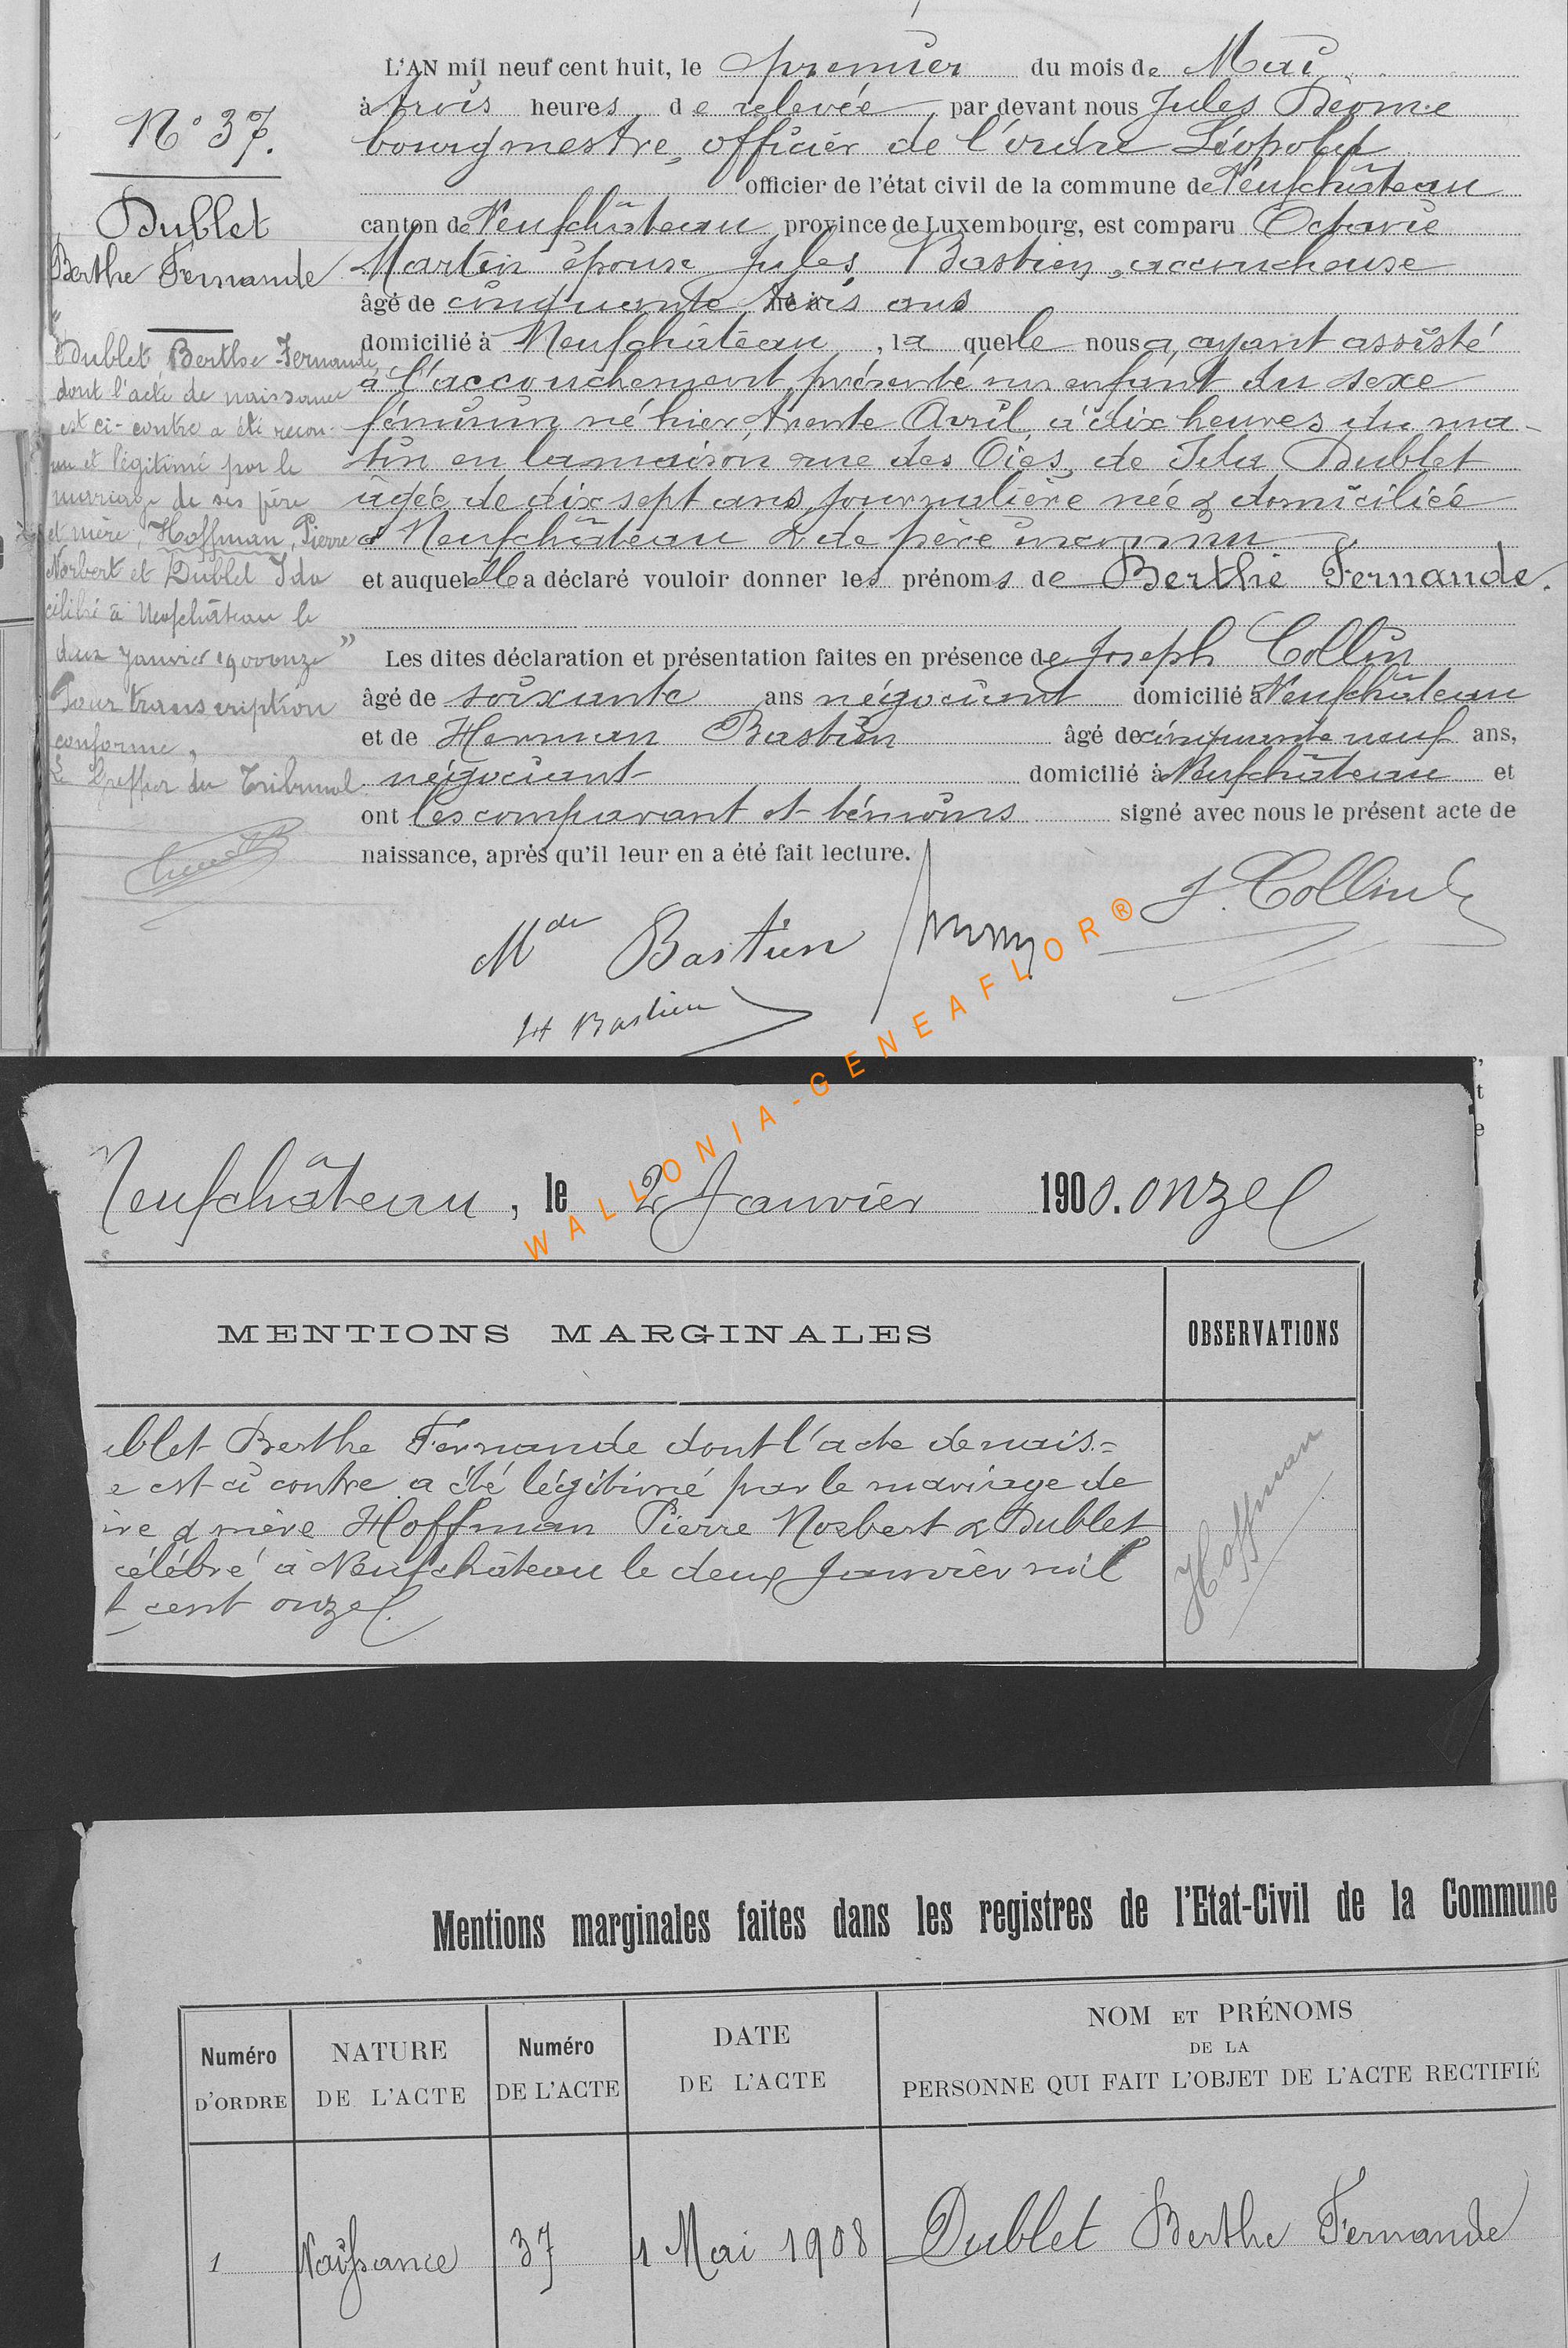 L'AN mil neuf cent huit, le premier du mois de Mai
à trois heures de relevée par devant nous Jules
bourgmestre, officier de l'ordre Léopold
officier de l'état civil de la commune de Neufchâteau
canton de Neufchâteau province de Luxembourg, est comparu Octavie
Martin épouse Jules Bastien, accoucheuse
âgé de cinquante trois ans
domicilié à Neufchâteau, la quelle nous a, ayant assisté
à l'accouchement, présenté un enfant du sexe
féminin né hier, trente Avril, à dix heures du ma-
tin en la maison rue des Oies, de Ida Dublet
âgée de dix sept ans, journalière née & domiciliée
à Neufchâteau & de père inconnu
et auquel elle a déclaré vouloir donner les prénoms de Berthe Fernande.
Les dites déclaration et présentation faites en présence de Joseph Collin
âgé de soixante ans négociant domicilié à Neufchâteau
et de Herman Bastin âgé de cinquante neuf ans,
négociant domicilié à Neufchâteau et
ont les comparant et témoins signé avec nous le présent acte de
naissance, après qu'il leur en a été fait lecture.
N° 37.
Dublet
Berthe Fernande
"Dublet Berthe-Fernande,
dont l'acte de naissance
est ci-contre a été recon-
nu et légitimé par le
mariage de ses père
et mère, Hoffman, Pierre
Norbert et Dublet Ida
célébré à Neufchâteau le
deux Janvier 1900onze"
Pour transcription
conforme,
Le Greffier du Tribunal
J. Collin
Mde Bastien
H Bastien
WALLONIA-GENEAFLOR®
Neufchâteau, le 2 Janvier 1900.onze
MENTIONS MARGINALES
OBSERVATIONS
ublet Berthe Fernande dont l'acte de nais=
e est ci contre a été légitimé par le mariage de
ère & mère Hoffman Pierre Norbert & Dublet
célébré à Neufchâteau le deux Janvier mil
f cent onze.
Hoffman
Mentions marginales faites dans les registres de l'Etat-Civil de la Commune
Numéro D'ORDRE
NATURE DE L'ACTE
Numéro DE L'ACTE
DATE DE L'ACTE
NOM ET PRÉNOMS
DE LA
PERSONNE QUI FAIT L'OBJET DE L'ACTE RECTIFIÉ
1 Naissance 37 1 Mai 1908 Dublet Berthe Fernande